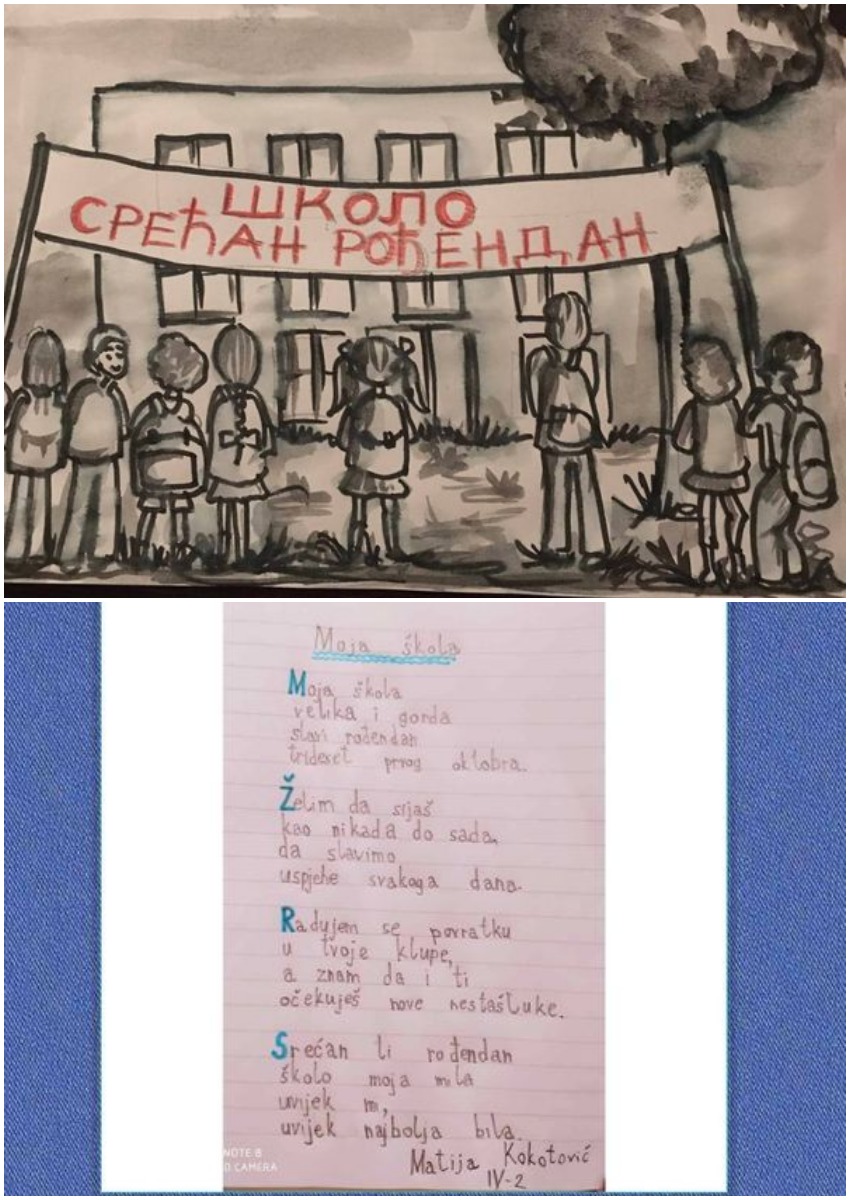 ШКОЛО
СРЕЋАН РОЂЕНДАН
Moja škola
Moja škola
velika i gorda
slavi rođendan
trideset prvog oktobra.
Želim da sijaš
kao nikada do sada,
da slavimo
uspjehe svakoga dana.
Radujem se povratku
u tvoje klupe,
a znam da i ti
očekuješ nove nestašluke.
Srećan ti rođendan
školo moja mila
uvijek mi,
uvijek najbolja bila.
Matija Kokotović
IV-2
NOTE 8
D CAMERA